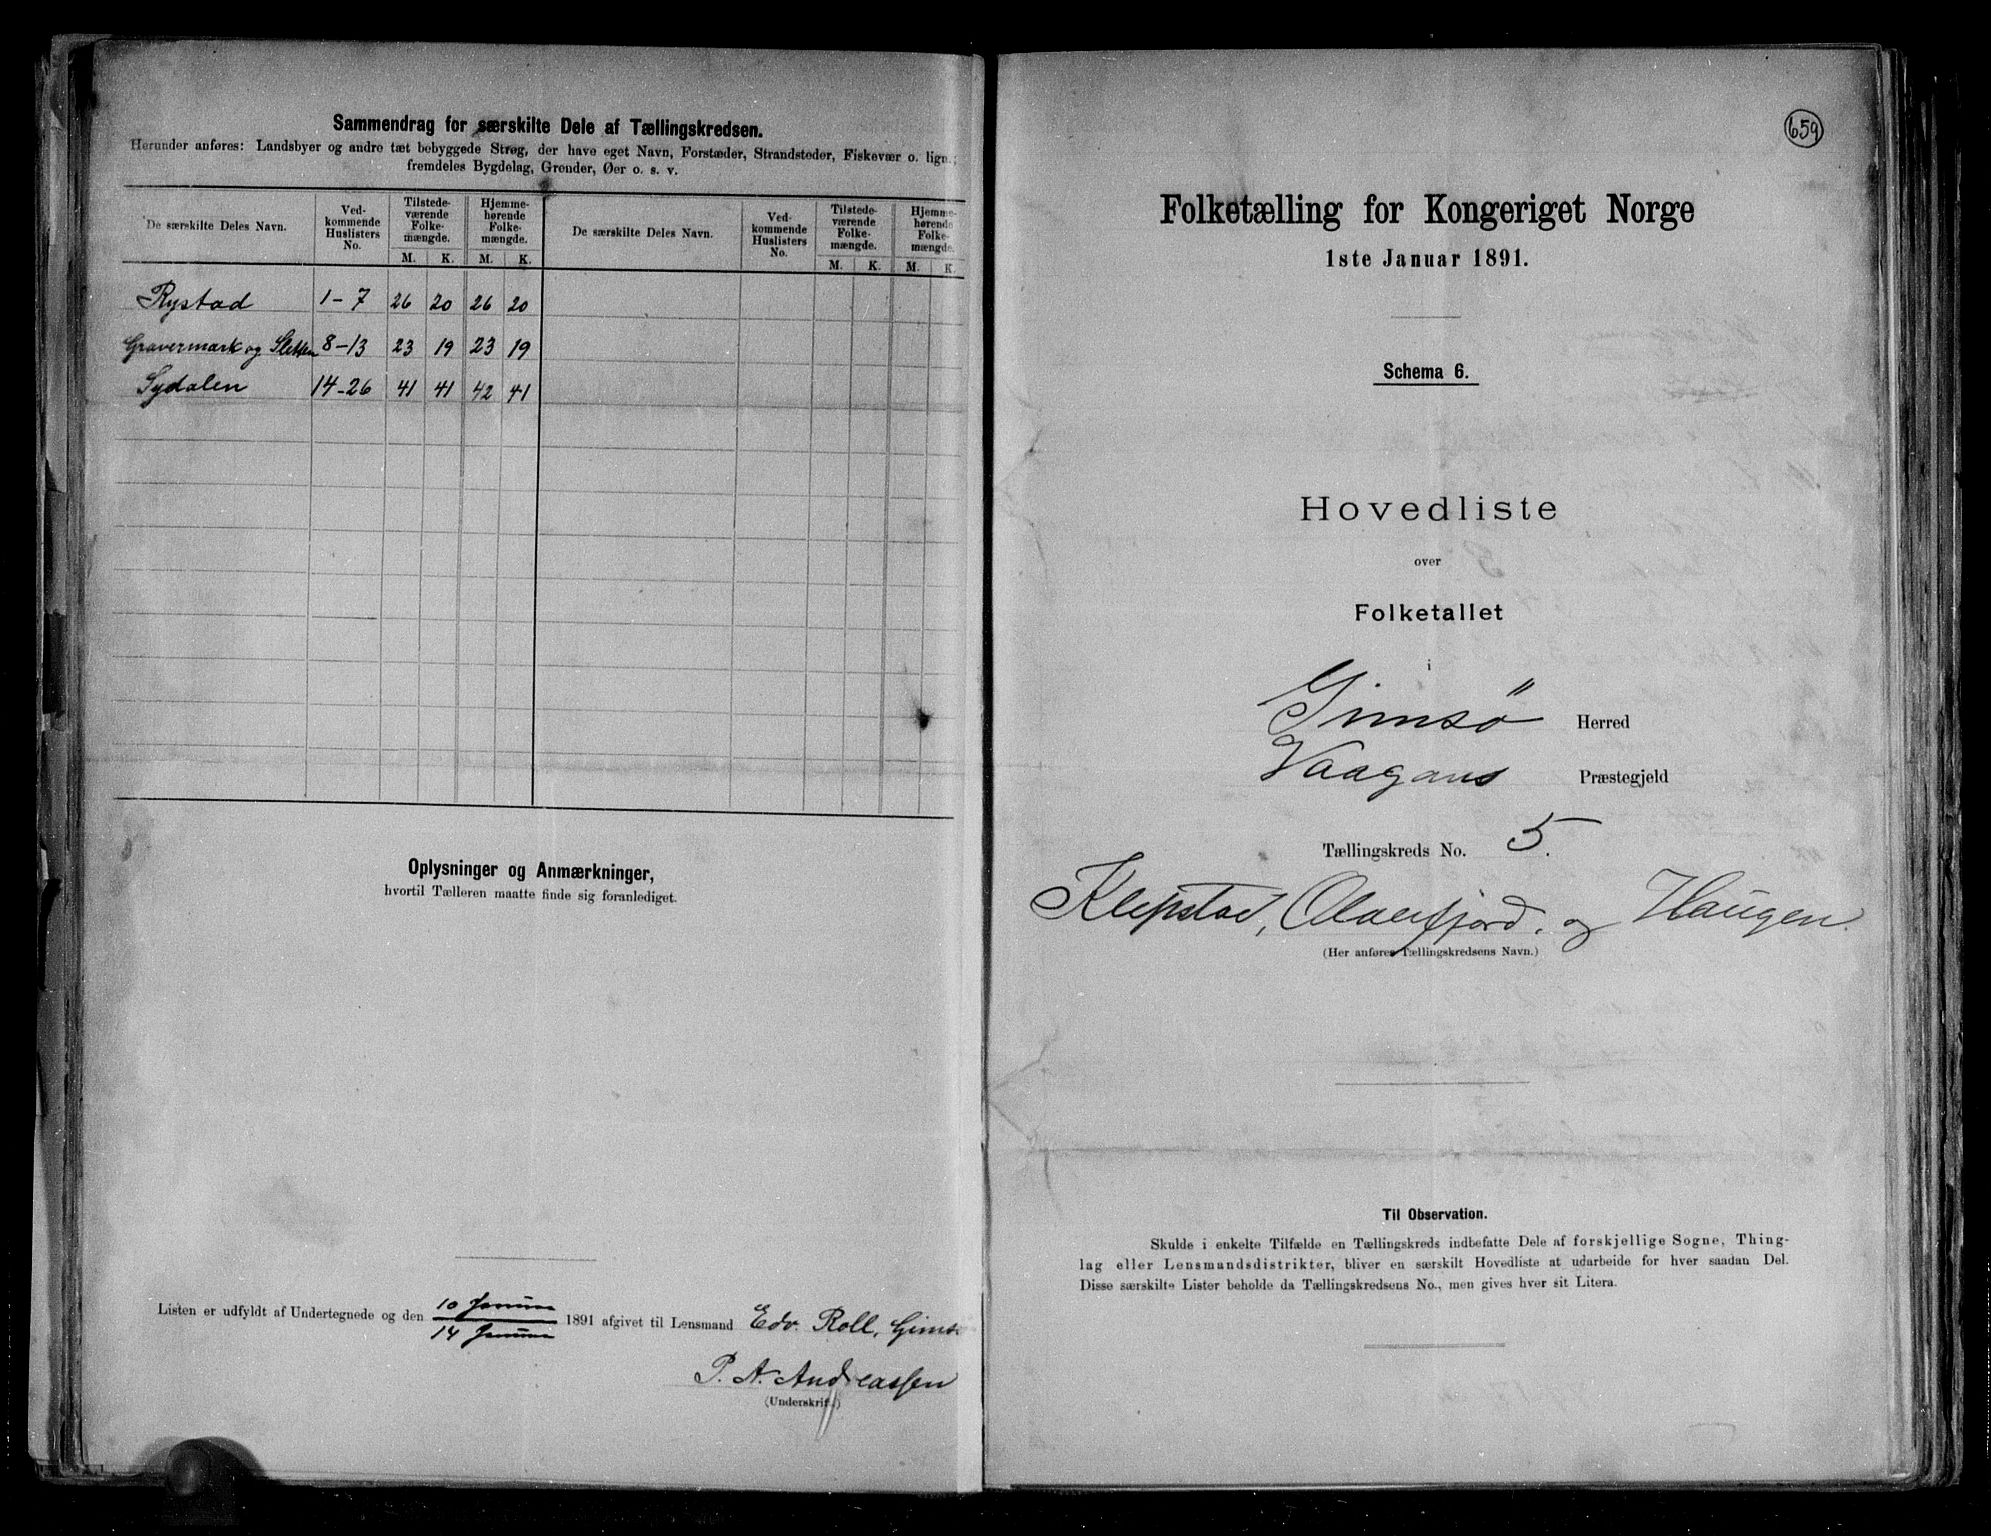 Sammendrag for særskilte Dele af Tællingskredsen.
Herunder anføres: Landsbyer og andre tæt bebyggede Strøg, der have eget Navn, Forstæder, Strandsteder, Fiskevær o. lign.;
fremdeles Bygdelag, Grender, Øer o. s. v.
De særskilte Deles Navn. Ved-kommende Huslisters No. Tilstede-værende Folke-mængde. Hjemme-hørende Folke-mængde. De særskilte Deles Navn. Ved-kommende Huslisters No. Tilstede-værende Folke-mængde. Hjemme-hørende Folke-mængde.
M. K. M. K. M. K. M. K
Rystad 1-7 26 20 26 20
Gravermark og Sletten 8-13 23 19 23 19
Sydalen 14-26 41 41 42 41
Oplysninger og Anmærkninger,
hvortil Tælleren maatte finde sig foranlediget.
Listen er udfyldt af Undertegnede og den 10 Januar / 14 Januar 1891 afgivet til Lensmand Edv. Roll, Gims
P. A. Andreassen
(Underskrift.)
659
Folketælling for Kongeriget Norge
1ste Januar 1891.
Schema 6.
Hovedliste
over
Folketallet
i
Gimsø Herred
Vaagans Præstegjeld
Tællingskreds No. 5.
Klepstad, Olderfjord, og Haugen.
(Her anføres Tællingskredsens Navn.)
Til Observation.
Skulde i enkelte Tilfælde en Tællingskreds indbefatte Dele af forskjellige Sogne, Thing-
lag eller Lensmandsdistrikter, bliver en særskilt Hovedliste at udarbeide for hver saadan Del.
Disse særskilte Lister beholde da Tællingskredsens No., men gives hver sit Litera.